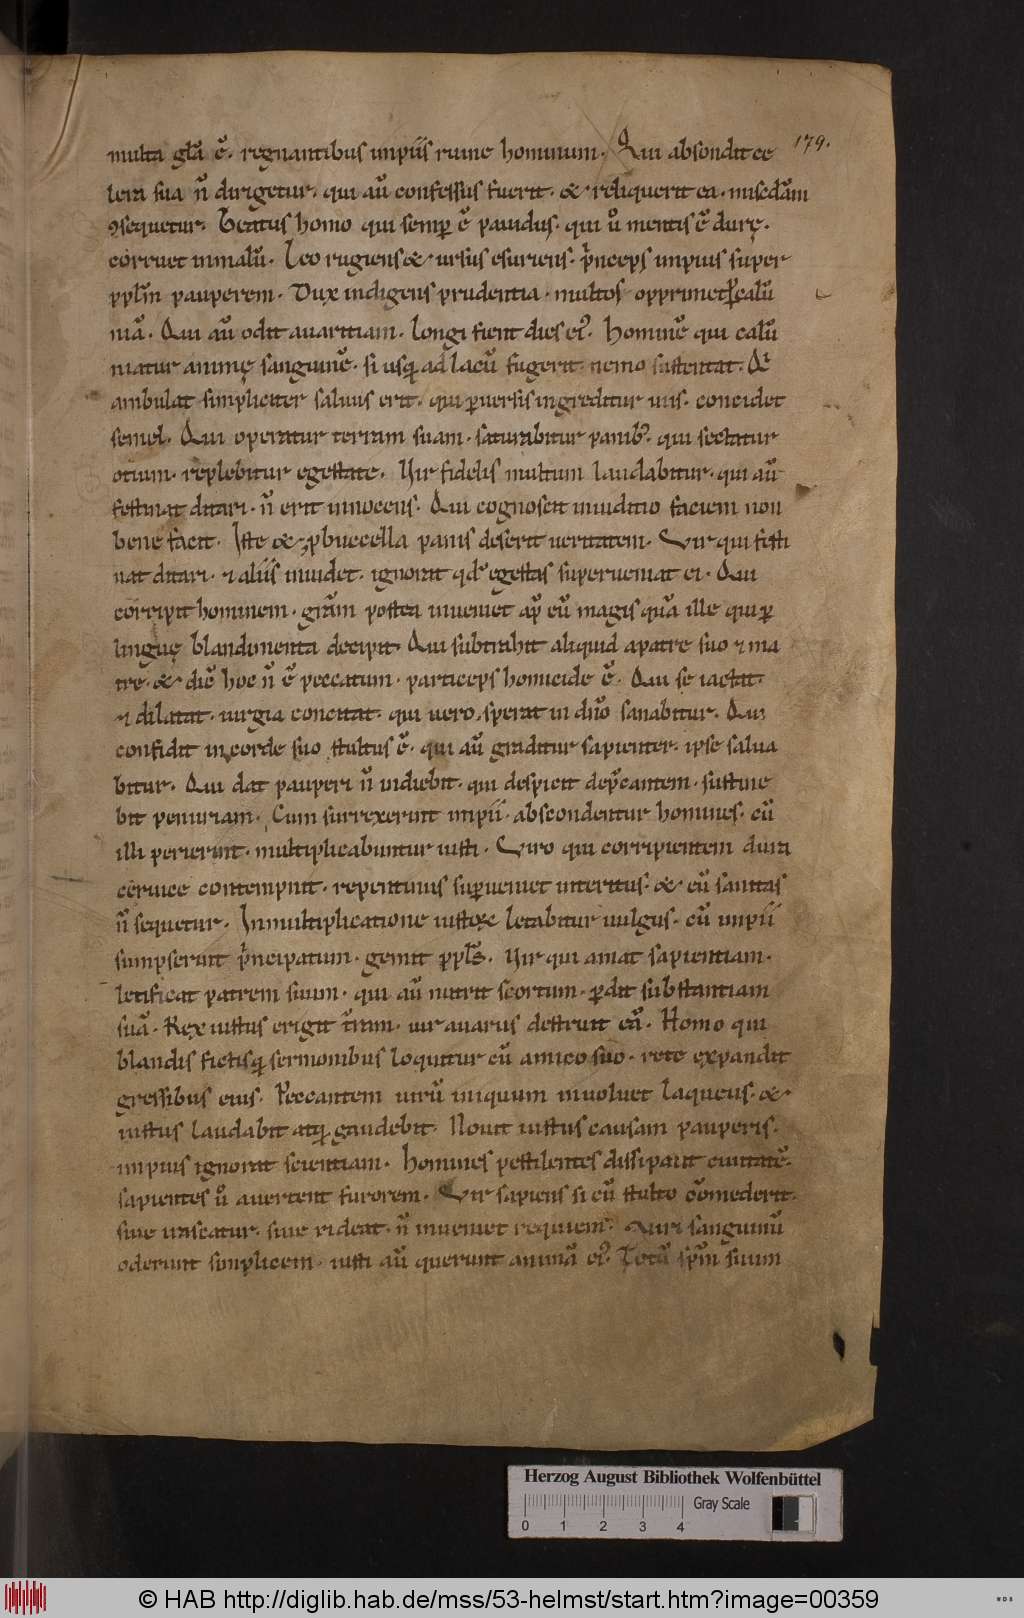 179.
multa gl̄a ē. regnantibus impiis ruine hominum. Qui absondit ce
lera sua n̄ dirigetur. qui aū confessus fuerit. & reliquerit ea. misc̄dam
ꝯsequetur. Beatus homo qui semp̄ ē pauidus. qui ů mentis ē durę.
corruet in malū. Leo rugiens & ursus esuriens. pͥnceps impius super
ppl̄m pauperem. Dux indigens prudentia. multos opprimet ꝑ calū
niā. Qui aū odit auaritiam. longi fient dies eiꝰ. Hominē qui calū
niatur animę sanguinē. si usqꝫ ad lacū fugerit. nemo sustentat. Qͥ
ambulat simpliciter saluus erit. qui ꝑuersis ingreditur uiis. concidet
semel. Qui operatur terram suam. saturabitur panibꝰ. qui sectatur
otium. replebitur egestate. Vir fidelis multum laudabitur. qui aū
festinat ditari. n̄ erit innocens. Qui cognoscit in iuditio faciem non
bene facit. Iste & ꝓ buccella panis deserit ueritatem. Vir qui festi
nat ditari. ⁊ aliis inuidet. ignorat qd̓ egestas superueniat ei. Qui
corripit hominem. gr̄am postea inueniet ap̄ eū magis quā ille qui ꝑ
linguę blandimenta decipit. Qui subtrahit aliquid a patre suo ⁊ ma
tre. & dic̄ hoc n̄ ē peccatum. particeps homicide ē. Qui se iactat.
⁊ dilatat. iurgia concitat. qui uero sperat in dn̄o sanabitur. Qui
confidit in corde suo stultus ē. qui aū graditur sapienter. ipse salua
bitur. Qui dat pauperi n̄ indiebit. qui despicit dep̄cantem. sustine
bit penuriam. Cum surrexerint impii. abscondentur homines. cū
illi perierint. multiplicabuntur iusti. Viro qui corripientem dura
ceruice contempnit. repentinus suꝑueniet interitus. & eū sanitas
n̄ sequetur. In multiplicatione iustoꝝ letabitur uulgus. cū impii
sumpserint pͥncipatum. gemit ppl̄s. Vir qui amat sapientiam.
letificat patrem suum. qui aū nutrit scortum. ꝑdit substantiam
suā. Rex iustus erigit t̄ram. uir auarus destruit eā. Homo qui
blandis fictisqꝫ sermonibus loquitur cū amico suo. rete expandit
gressibus eius. Peccantem uirū iniquum inuoluet laqueus. &
iustus laudabit atqꝫ gaudebit. Nouit iustus causam pauperis.
impius ignorat scientiam. Homines pestilentes dissipant ciuitatē.
sapientes ů auertent furorem. Vir sapiens si cū stulto cōmederit.
siue irascatur. siue rideat. n̄ inueniet requiem. Viri sanguinū
oderunt simplicem. iusti aū querunt animā eiꝰ. Totū sp̄m suum
Herzog August Bibliothek Wolfenbüttel
Gray Scale
0 1 2 3 4
© HAB http://diglib.hab.de/mss/53-helmst/start.htm?image=00359